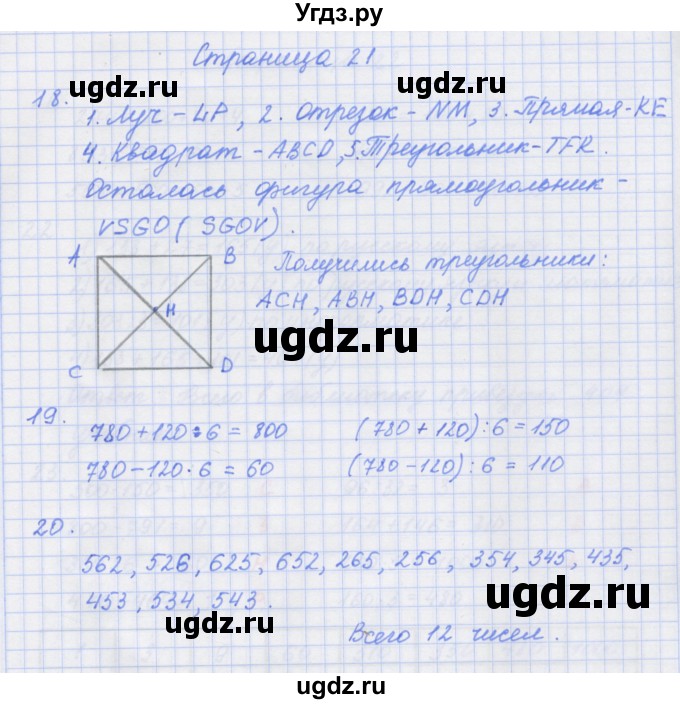 Угдз.ру
Страница 21
18.
1. Луч - LP, 2. Отрезок - NM, 3. Прямая - KE
4. Квадрат - ABCD, 5. Треугольник - TFR.
Осталась фигура прямоугольник -
VSGO ( SGOV).
A B
Получились треугольники:
ACH, ABH, BDH, CDH
H
C D
19.
780 + 120 : 6 = 800 (780 + 120) : 6 = 150
780 - 120 · 6 = 60 (780 - 120) : 6 = 110
20.
562, 526, 625, 652, 265, 256, 354, 345, 435,
453, 534, 543.
Всего 12 чисел.
ugdz.ru
ugdz.ru
ugdz.ru
ugdz.ru
ugdz.ru
ugdz.ru
ugdz.ru
ugdz.ru